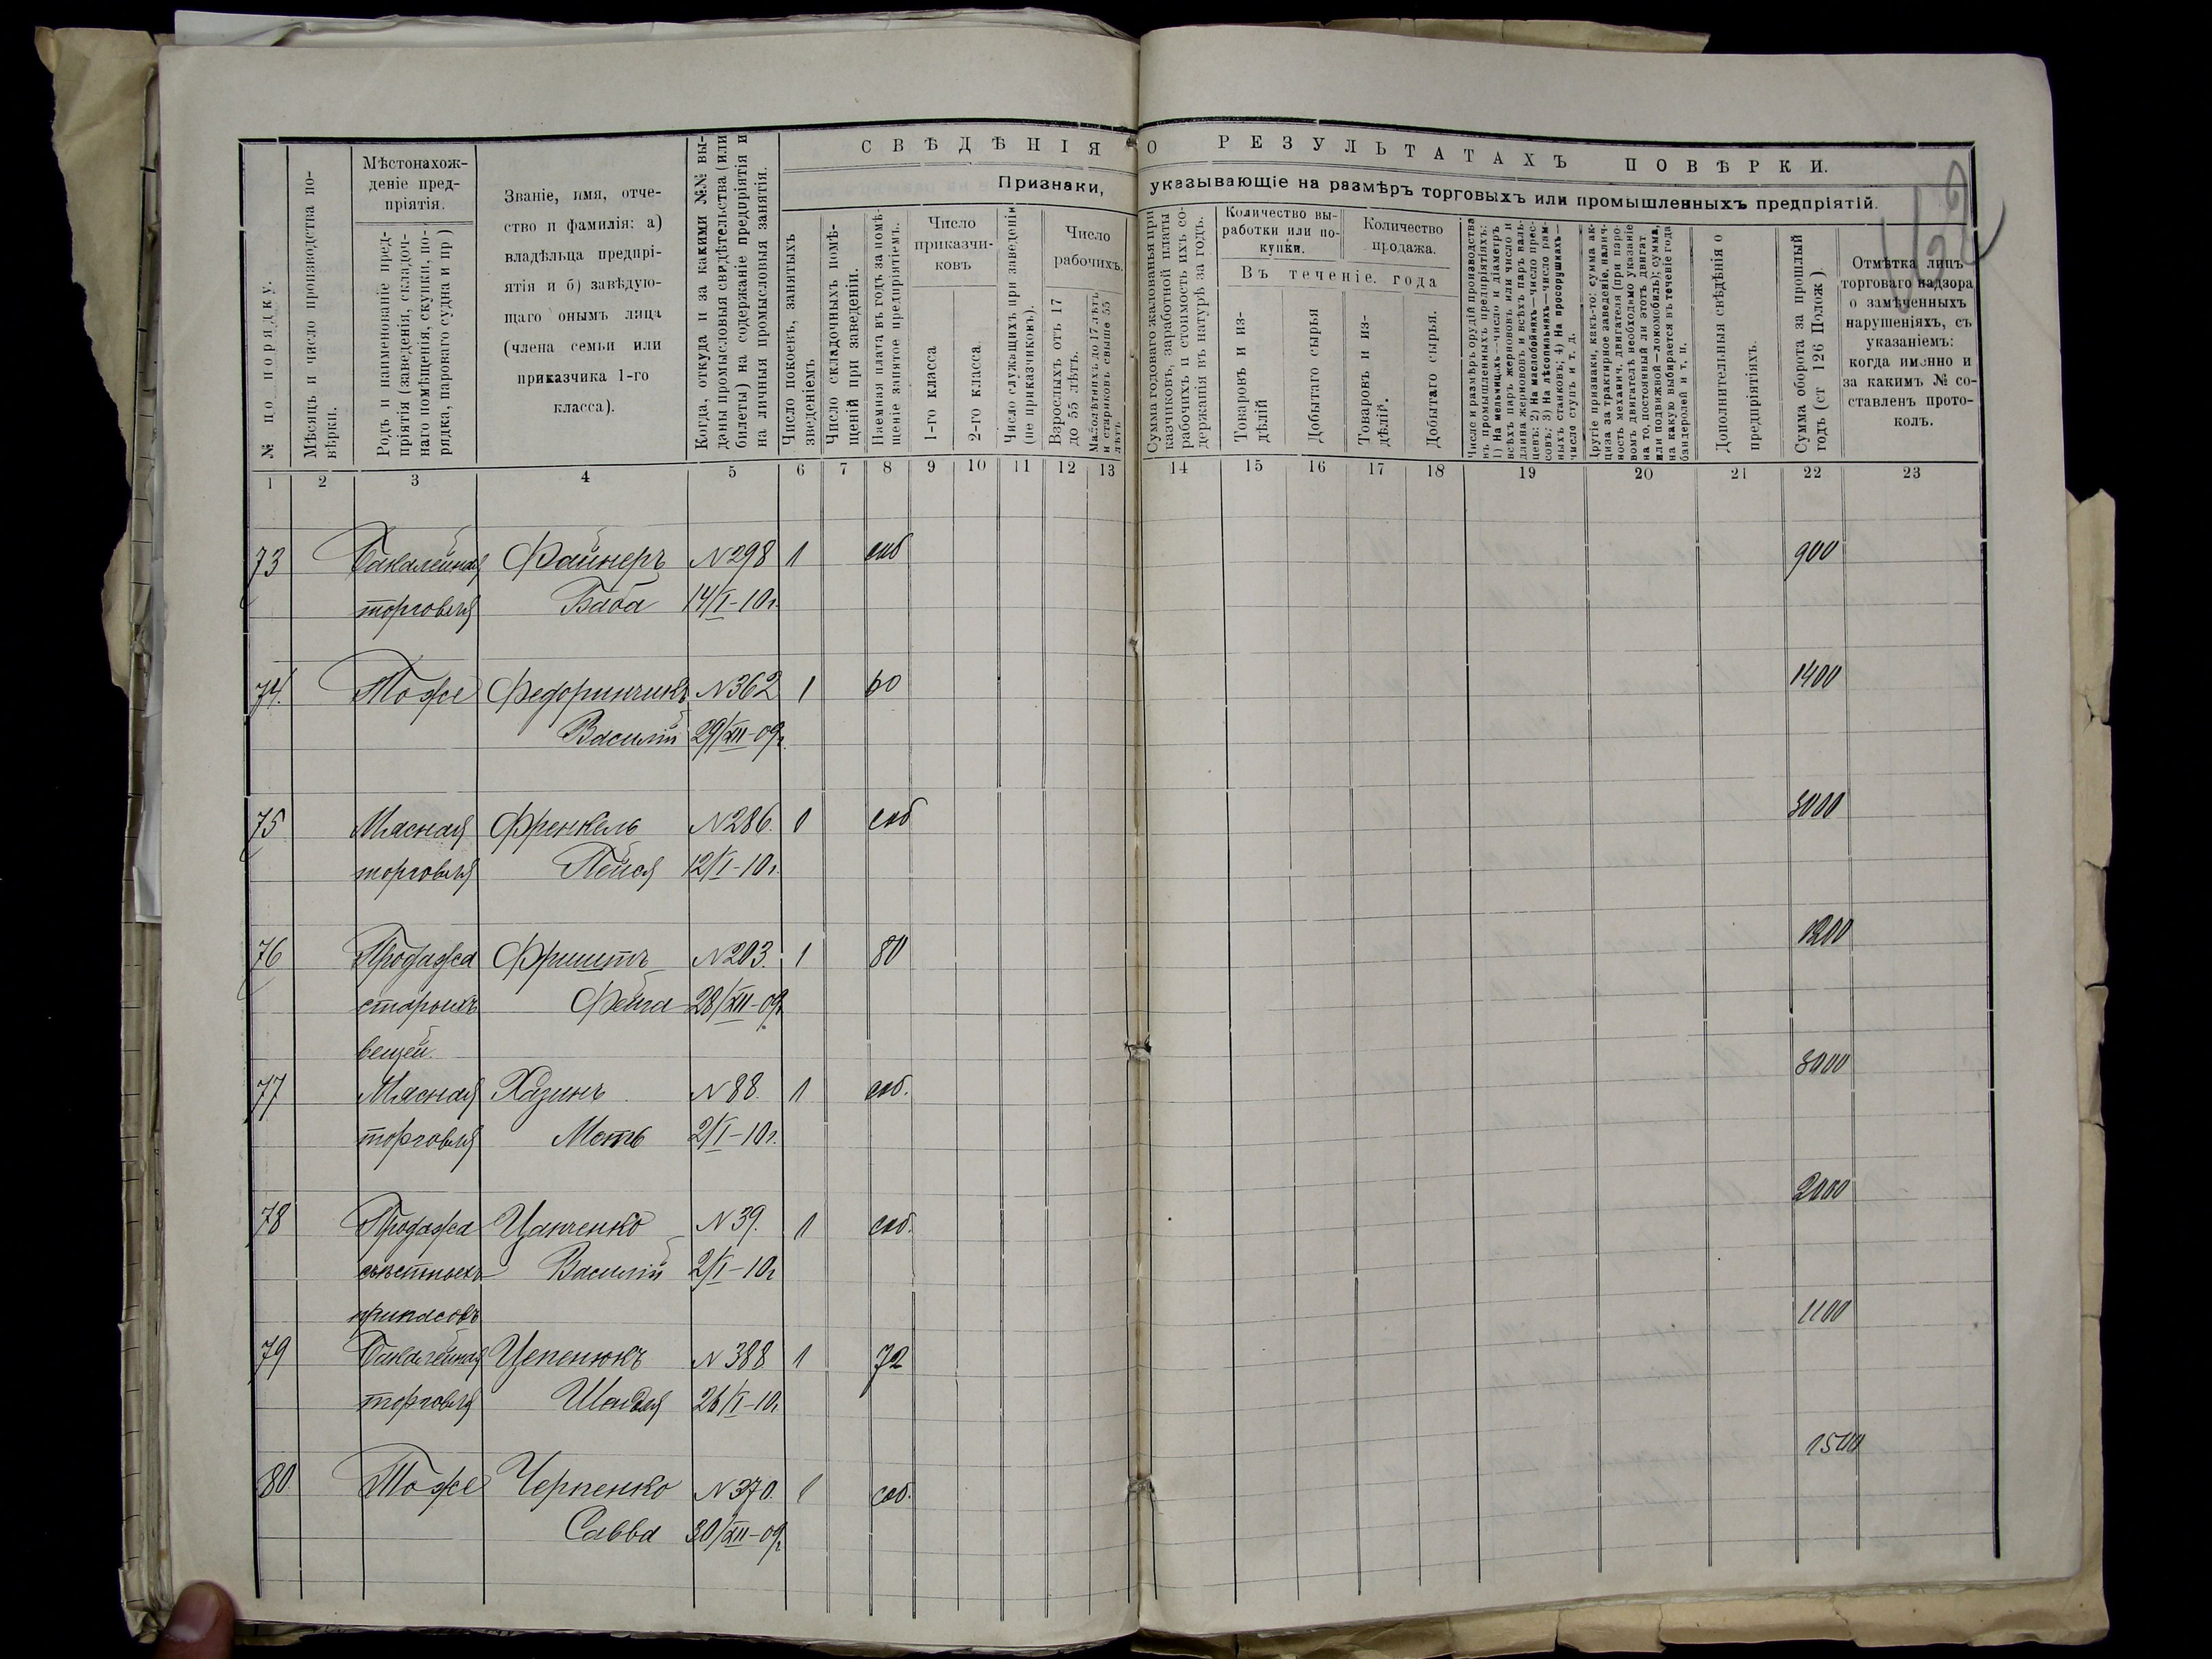 СВѢДѢНІЯ О РЕЗУЛЬТАТАХЪ ПОВѢРКИ.
Признаки, указывающіе на размѣръ торговыхъ или промышленныхъ предпріятій.
№ по порядку.
Мѣсяцъ и число производства по-
вѣрки.
Мѣстонахож-
деніе пред-
пріятія.
Родъ и наименованіе пред-
пріятія (заведенія, складоч-
наго помѣщенія, скупки, по-
рядка, пароваго судна и пр )
Званіе, имя, отче-
ство и фамилія: а)
владѣльца предпрі-
ятія и б) завѣдую-
щаго онымъ лица
(члена семьи или
приказчика 1-го
класса).
Когда, откуда и за какими №№ вы-
даны промысловыя свидѣтельства (или
билеты) на содержаніе предпріятія и
на личныя промысловыя занятія.
Число покоевъ, занятыхъ
зведеніемъ
Число складочныхъ помѣ-
щеній при заведеніи.
Наемная плата въ годъ за помѣ-
щеніе занятое предпріятіемъ.
Число
приказчи-
ковъ
1-го класса
2-го класса.
Число служащихъ при заведеніи
(не приказчиковъ).
Число
рабочихъ.
Взрослыхъ отъ 17
до 55 лѣтъ.
Малолѣтнихъ до 17 лѣтъ
и стариковъ свыше 55
лѣтъ
Сумма годоваго жалованья при
казчиковъ, заработной платы
рабочихъ и стоимость ихъ со-
держанія въ натурѣ за годъ.
Количество вы-
работки или по-
купки.
Количество
продажа.
Въ теченіе. года
Товаровъ и из-
дѣлій
Добытаго сырья
Товаровъ и из-
дѣлій.
Добытаго сырья.
Число и размѣръ орудій производства
въ промышленныхъ предпріятіяхъ:
1) На мельницахъ—число и діаметръ
всѣхъ паръ жерновонъ или число и
длина жернововъ и всѣхъ паръ валь-
цевъ; 2) На маслобойняхъ—число прес-
совъ; 3) На лѣсопильняхъ—число рам-
ныхъ станковъ; 4) На просорушкахъ—
число ступъ и т. д.
Другіе признаки, какъ-то: сумма ак-
циза за трактирное заведеніе, налич-
ность механич. двигателя (при паро-
вомъ двигателѣ необходимо указаніе
на то, постоянный ли этотъ двигат
или подвижной—локомобиль); сумма,
на какую выбирается въ теченіе года
бандеролей и т. п.
Дополнительныя свѣдѣнія о
предпріятіяхъ.
Сумма оборота за прошлый
годъ (ст 126 Полож ).
Отмѣтка лицъ
торговаго надзора
о замѣченныхъ
нарушеніяхъ, съ
указаніемъ:
когда именно и
за какимъ № со-
ставленъ прото-
колъ.
1 2 3 4 5 6 7 8 9 10 11 12 13 14 15 16 17 18 19 20 21 22 23
73 Бакалейная Файнеръ №298 1 соб 900
торговля Баба 14/I-10г.
74. Тоже Федоринчикъ №362 1 60 1400
Василій 29/XII-09г.
75 Мясная Френкель №286. 1 соб 3000
торговля Пейся 12/I-10г.
76 Продажа Фриштъ №203. 1 80 1200
старыхъ Фейга 28/XII-09г
вещей.
77 Мясная Хазинъ №88. 1 соб. 3000
торговля Моть 2/I-10г.
78 Продажа Цапенко №39. 1 соб. 2000
съѣстныхъ Василій 2/I-10г
припасовъ
79 Бакалейная Цепенюкъ №388 1 72 1100
торговля Шейдля 26/I-10г
80 Тоже Черпенко №370. 1 соб. 1500
Савва 30/XII-09г